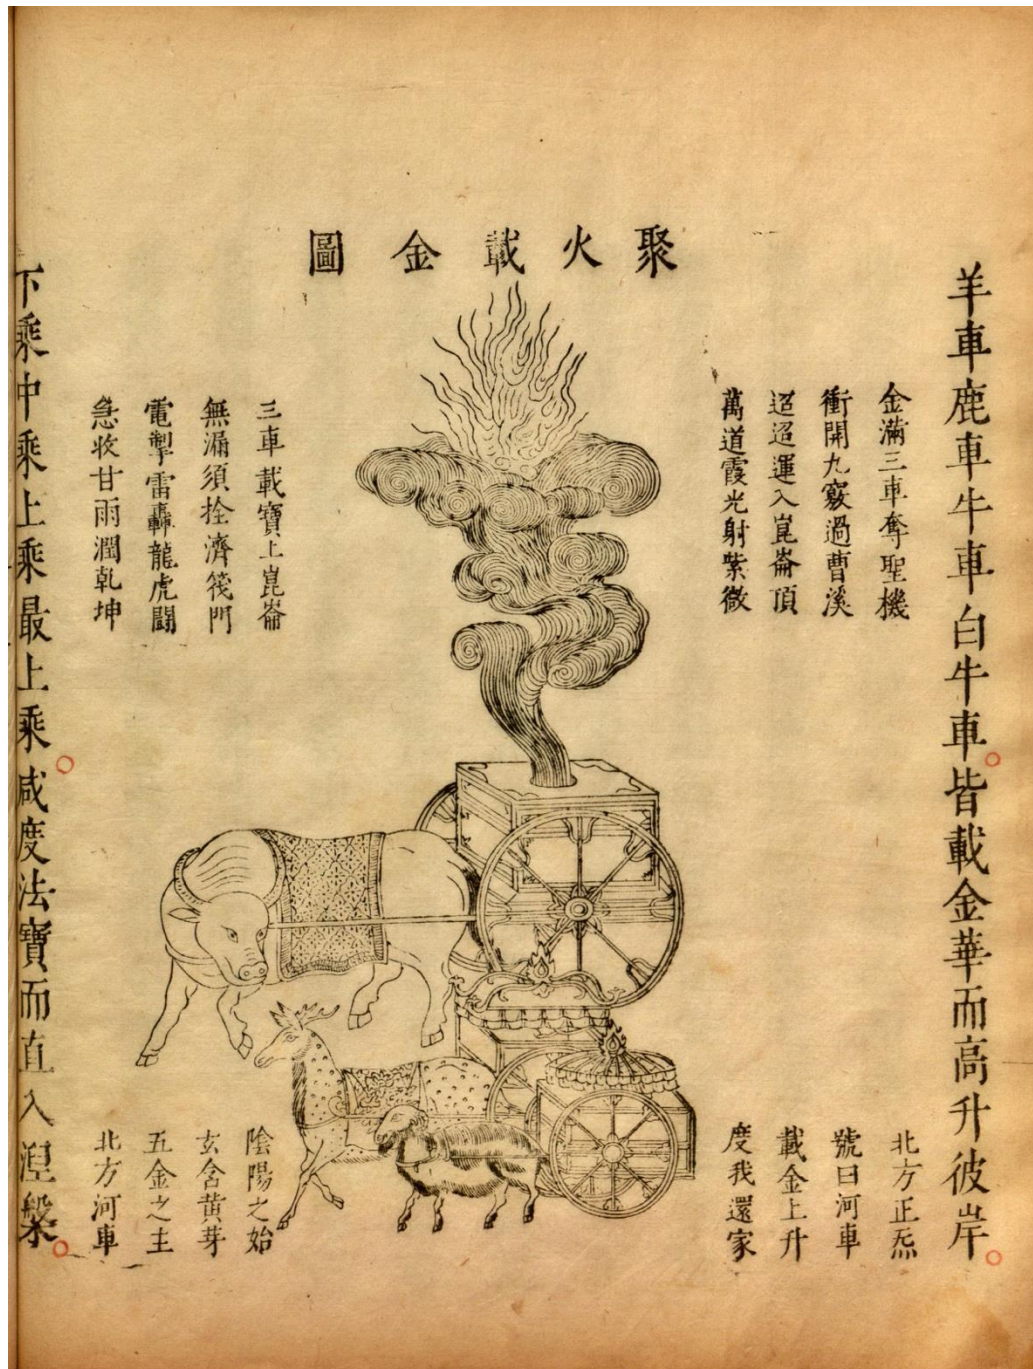 聚火載金圖
羊車鹿車牛車白牛車皆載金華而高升彼岸
金滿三車奪聖機
衝開九竅過曹溪
迢迢運入崑崙頂
萬道霞光射紫微
三車載寶上崑崙
無漏須拴濟筏門
電掣雷轟龍虎鬭
急收甘雨潤乾坤
北方正炁
號曰河車
載金上升
度我還家
陰陽之始
玄含黃芽
五金之主
北方河車
下乘中乘上乘最上乘咸度法寶而直入涅槃